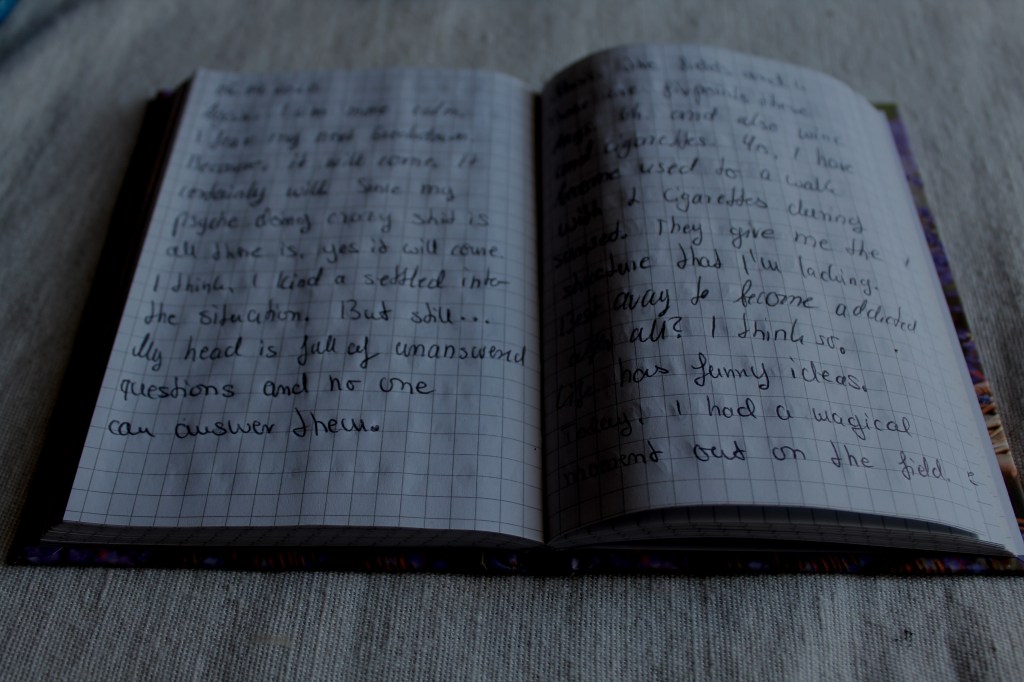 I fear my next breakdown.
Because, it will come, it
certainly will. Since my
psyche doing crazy shit is
all there is, yes it will come.
I think, I kind a settled into
the situation. But still...
My head is full of unanswered
questions and no one
can answer them.
the fields and
are fixpoints these
days. Oh and also wine
and cigarettes. Yes, I have
become used to a walk
with 2 cigarettes during
sunset. They give me the
structure that I'm lacking.
away to become addicted
after all? I think so.
Life has funny ideas.
Today, I had a magical
moment out on the field.